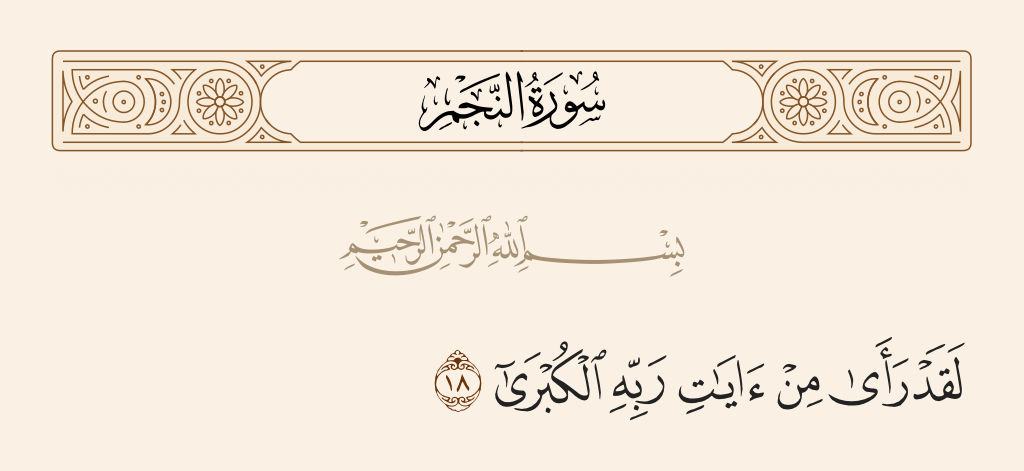 سُورَةُ النَّجْمِ
بِسْمِ ٱللَّهِ ٱلرَّحْمَٰنِ ٱلرَّحِيمِ
لَقَدْ رَأَىٰ مِنْ ءَايَٰتِ رَبِّهِ ٱلْكُبْرَىٰٓ ١٨